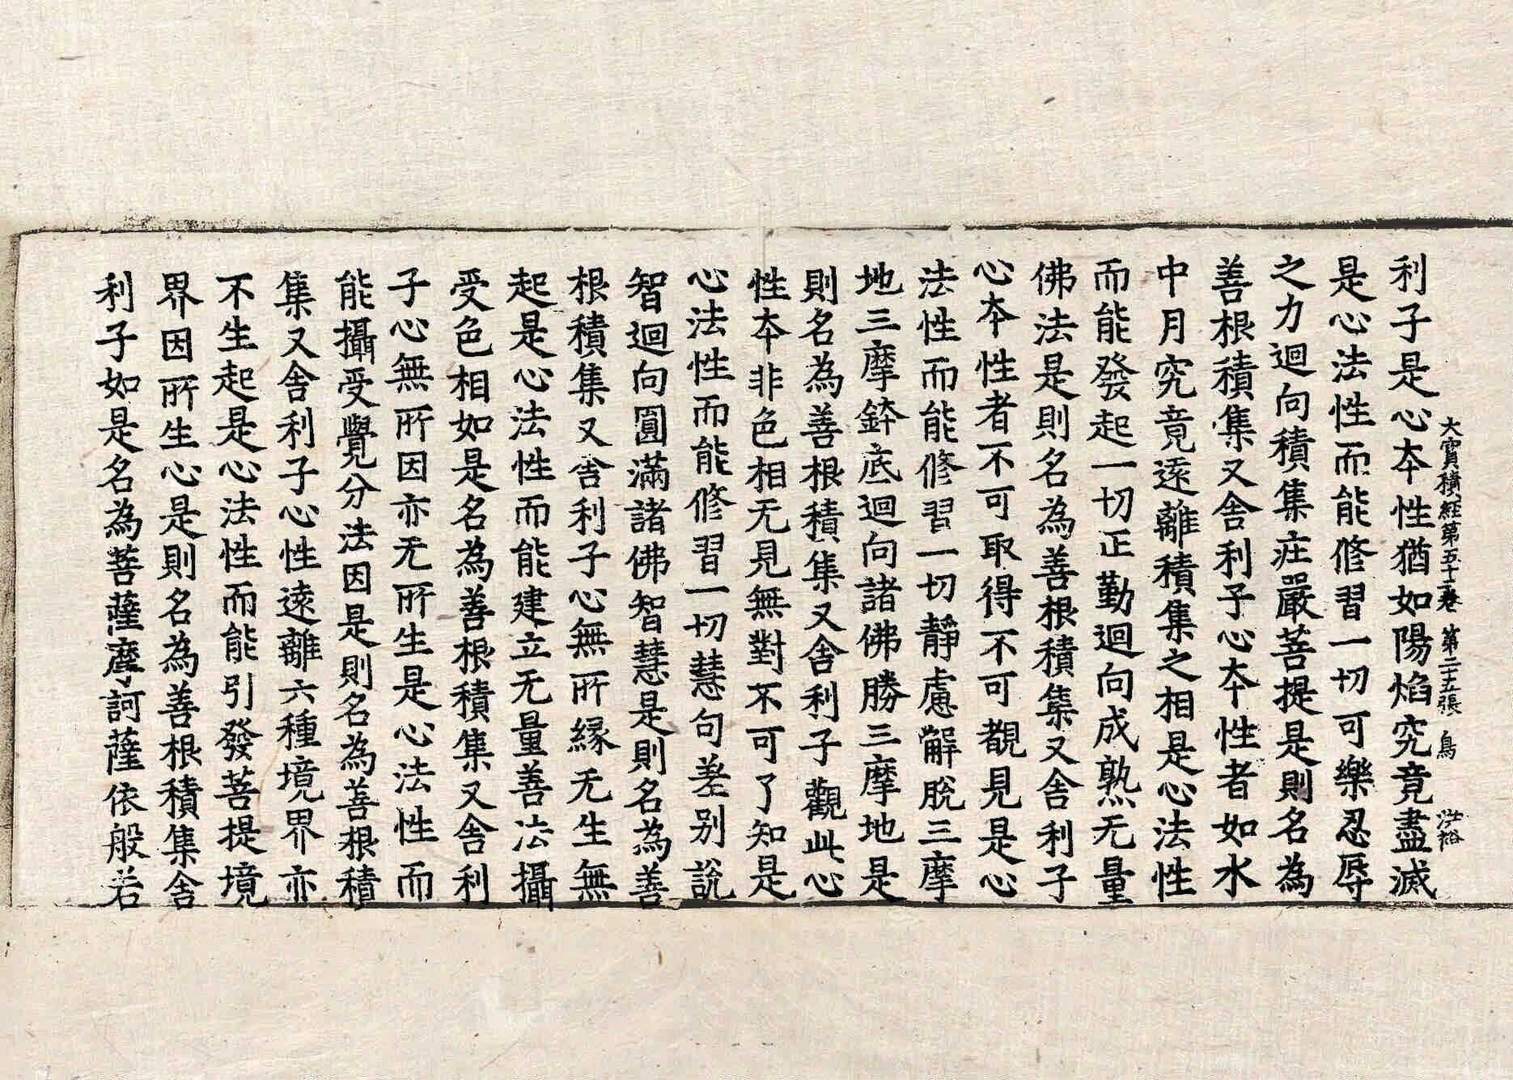 大寶積経第五十卷 第二十五張 鳥 洪裕
利子是心夲性猶如陽焰究竟盡滅
是心法性而能修習一切可樂忍辱
之力迴向積集庄嚴菩提是則名為
善根積集又舍利子心夲性者如水
中月究竟遠離積集之相是心法性
而能發起一切正勤迴向成熟无量
佛法是則名為善根積集又舍利子
心夲性者不可取得不可覩見是心
法性而能修習一切靜慮解脫三摩
地三摩鉢底迴向諸佛勝三摩地是
則名為善根積集又舍利子觀此心
性夲非色相无見無對不可了知是
心法性而能修習一切慧句差别說
智迴向圓滿諸佛智慧是則名為善
根積集又舍利子心無所縁无生無
起是心法性而能建立无量善法攝
受色相如是名為善根積集又舍利
子心無所因亦无所生是心法性而
能攝受覺分法因是則名為善根積
集又舍利子心性遠離六種境界亦
不生起是心法性而能引發菩提境
界因所生心是則名為善根積集舍
利子如是名為菩薩摩訶薩依般若